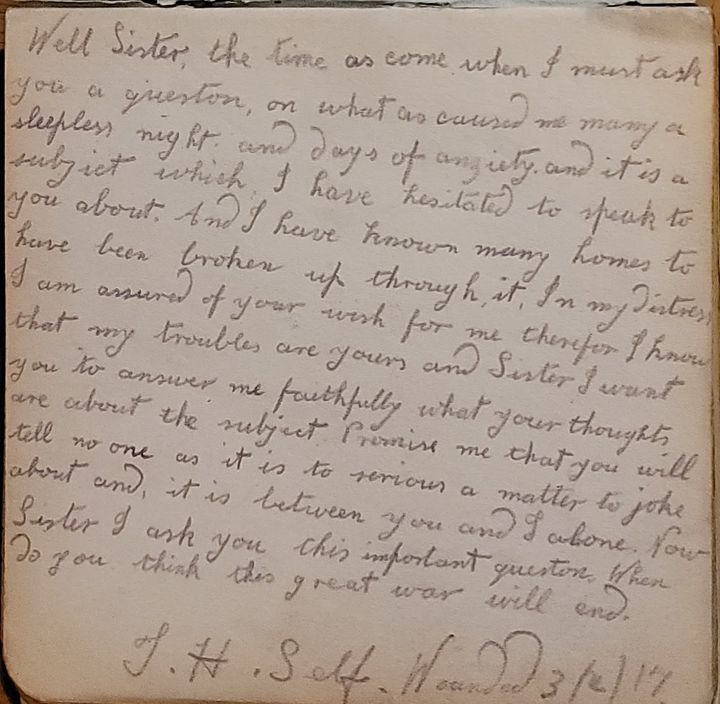 Well Sister, the time as come when I must ask
you a queston, on what as caused me many a
sleepless night. and days of angiety. and it is a
subjiet which I have hesitated to speak to
you about. And I have known many homes to
have been broken up through, it, In my distress
I am assured of your wish for me therefor I know
that my troubles are yours and Sister I want
you to answer me faithfully what your thoughts
are about the subject. Promise me that you will
tell no one as it is to serious a matter to joke
about and, it is between you and I alone. Now
Sister I ask you this important queston. When
do you think this great war will end.
J. H. Self. Wounded